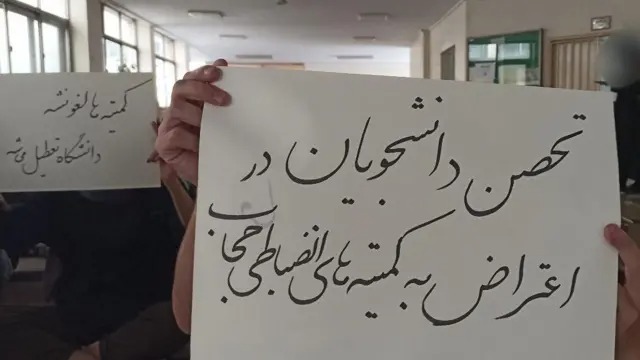 تحصن دانشجویان در
اعتراض به کمیته‌های انضباطی حجاب
کمیته ها لغو نشه
دانشگاه تعطیل می‌شه